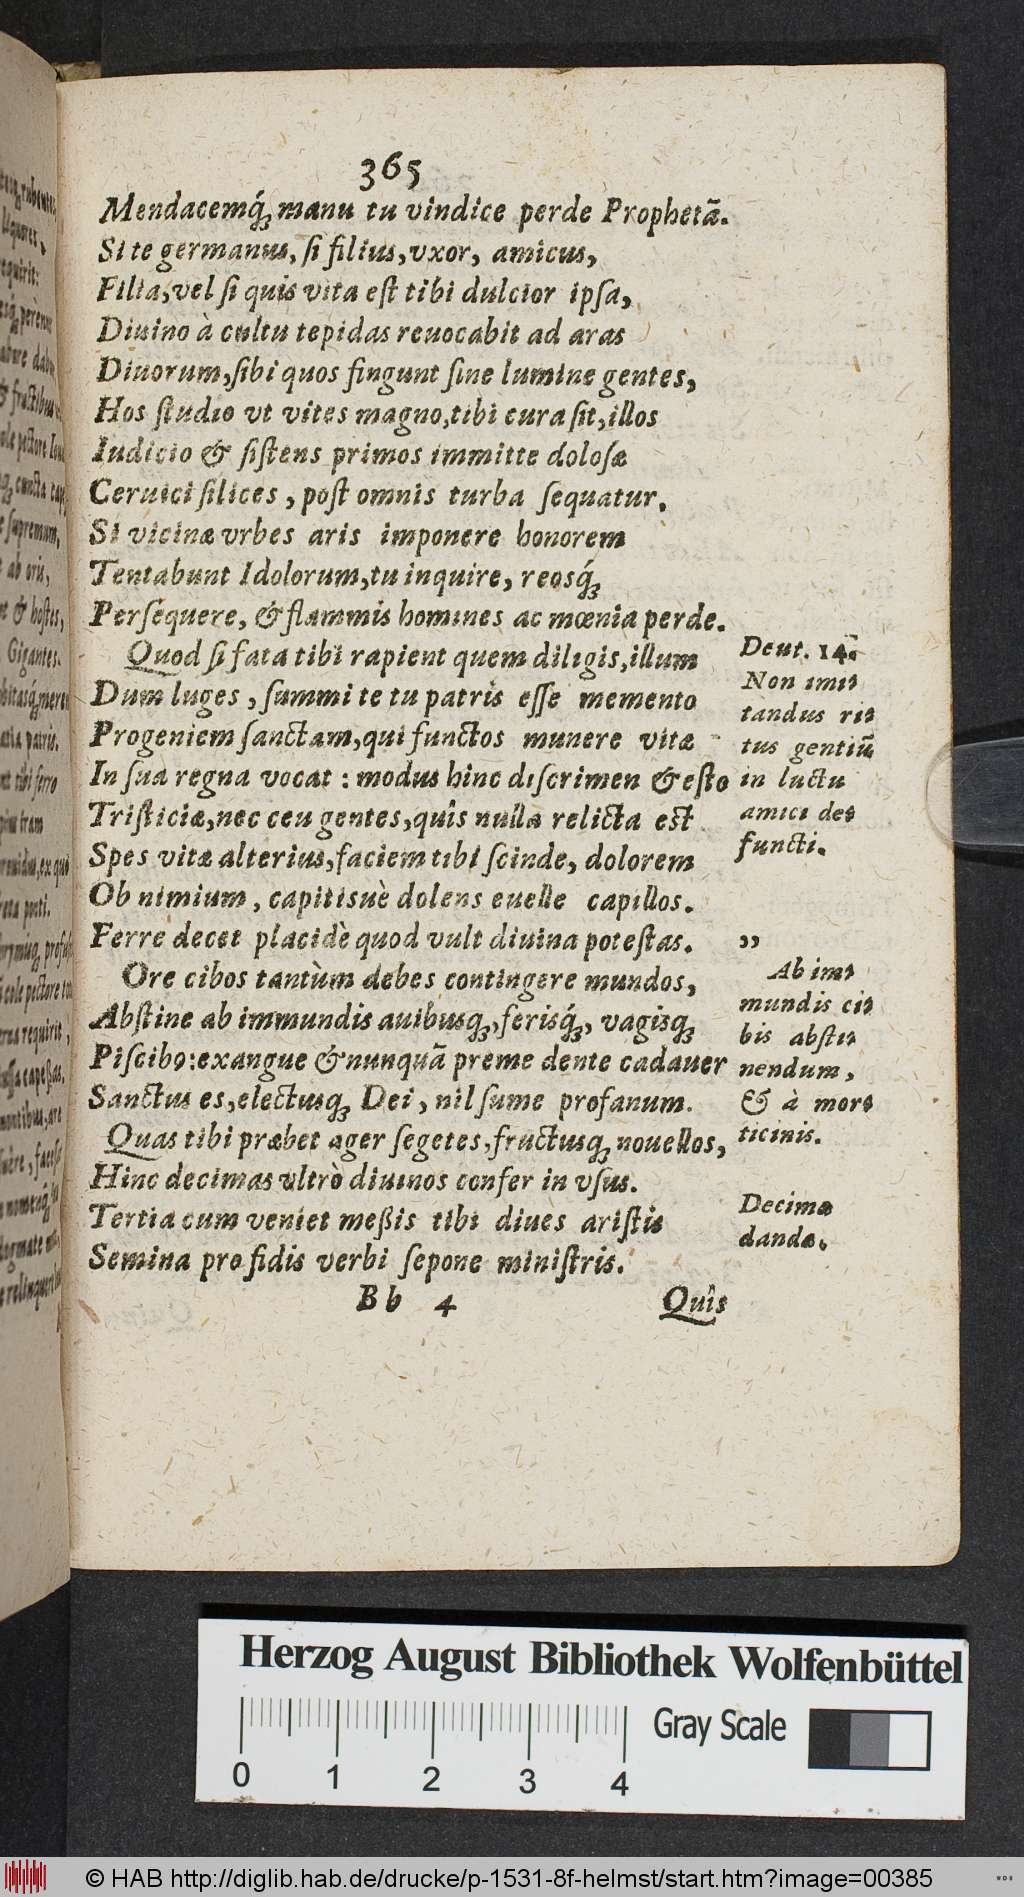 365
Mendacemq́; manu tu vindice perde Prophetã.
Si te germanus, ſi filius, vxor, amicus,
Filia, vel ſi quis vita eſt tibi dulcior ipſa,
Diuino à cultu tepidas reuocabit ad aras
Diuorum, ſibi quos fingunt ſine lumine gentes,
Hos ſtudio vt vites magno, tibi cura ſit, illos
Iudicio & ſiſtens primos immitte doloſæ
Ceruici ſilices, poſt omnis turba ſequatur.
Si vicinæ vrbes aris imponere honorem
Tentabunt Idolorum, tu inquire, reosq́;
Perſequere, & flammis homines ac mœnia perde.
Quod ſi fata tibi rapient quem diligis, illum
Dum luges, ſummi te tu patris eſſe memento
Progeniem ſanctam, qui functos munere vitæ
In ſua regna vocat: modus hinc diſcrimen & eſto
Triſticiæ, nec ceu gentes, quîs nulla relicta est
Spes vitæ alterius, faciem tibi ſcinde, dolorem
Ob nimium, capitisuè dolens euelle capillos.
Ferre decet placidè quod vult diuina poteſtas.
Ore cibos tantùm debes contingere mundos,
Abſtine ab immundis auibusq;, ferisq́;, vagisq;
Piſcibꝰ: exangue & nunquã preme dente cadauer
Sanctus es, electusq; Dei, nil ſume profanum.
Quas tibi præbet ager ſegetes, fructusq; nouellos,
Hinc decimas vltrò diuinos confer in vſus.
Tertia cum veniet meßis tibi diues ariſtis
Semina pro fidis verbi ſepone miniſtris.
Bb 4
Quîs
Deut. 14.
Non imi⸗
tandus ri⸗
tus gentiũ
in luctu
amici de⸗
functi.
„
Ab im⸗
mundis ci⸗
bis abſti⸗
nendum,
& à mor⸗
ticinis.
Decimæ
dandæ.
Herzog August Bibliothek Wolfenbüttel
Gray Scale
0 1 2 3 4
© HAB http://diglib.hab.de/drucke/p-1531-8f-helmst/start.htm?image=00385